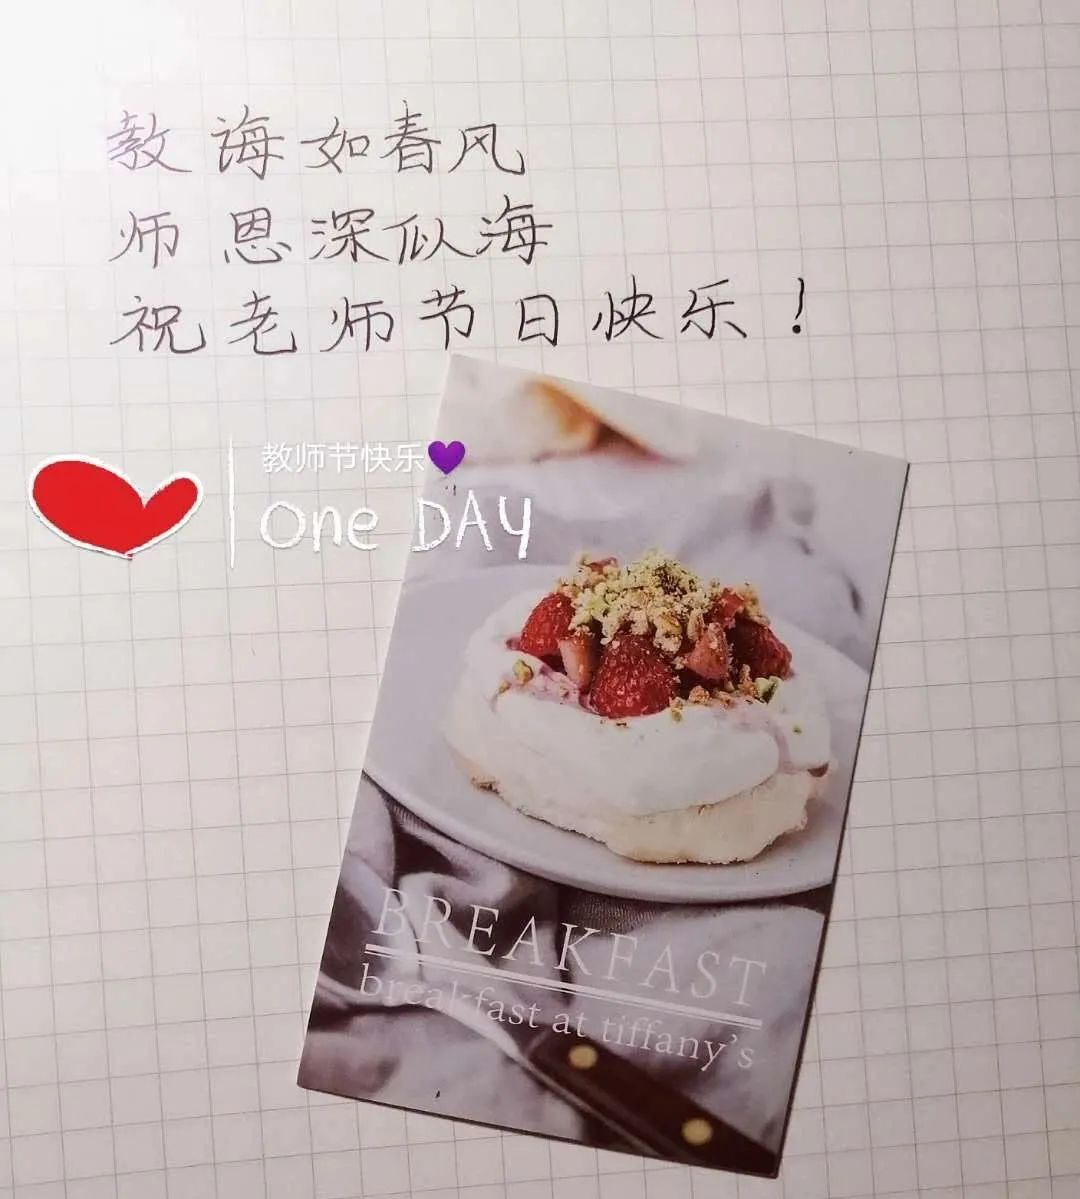 教诲如春风
师恩深似海
祝老师节日快乐！
教师节快乐💜
One DAY
BREAKFAST
breakfast at tiffany's